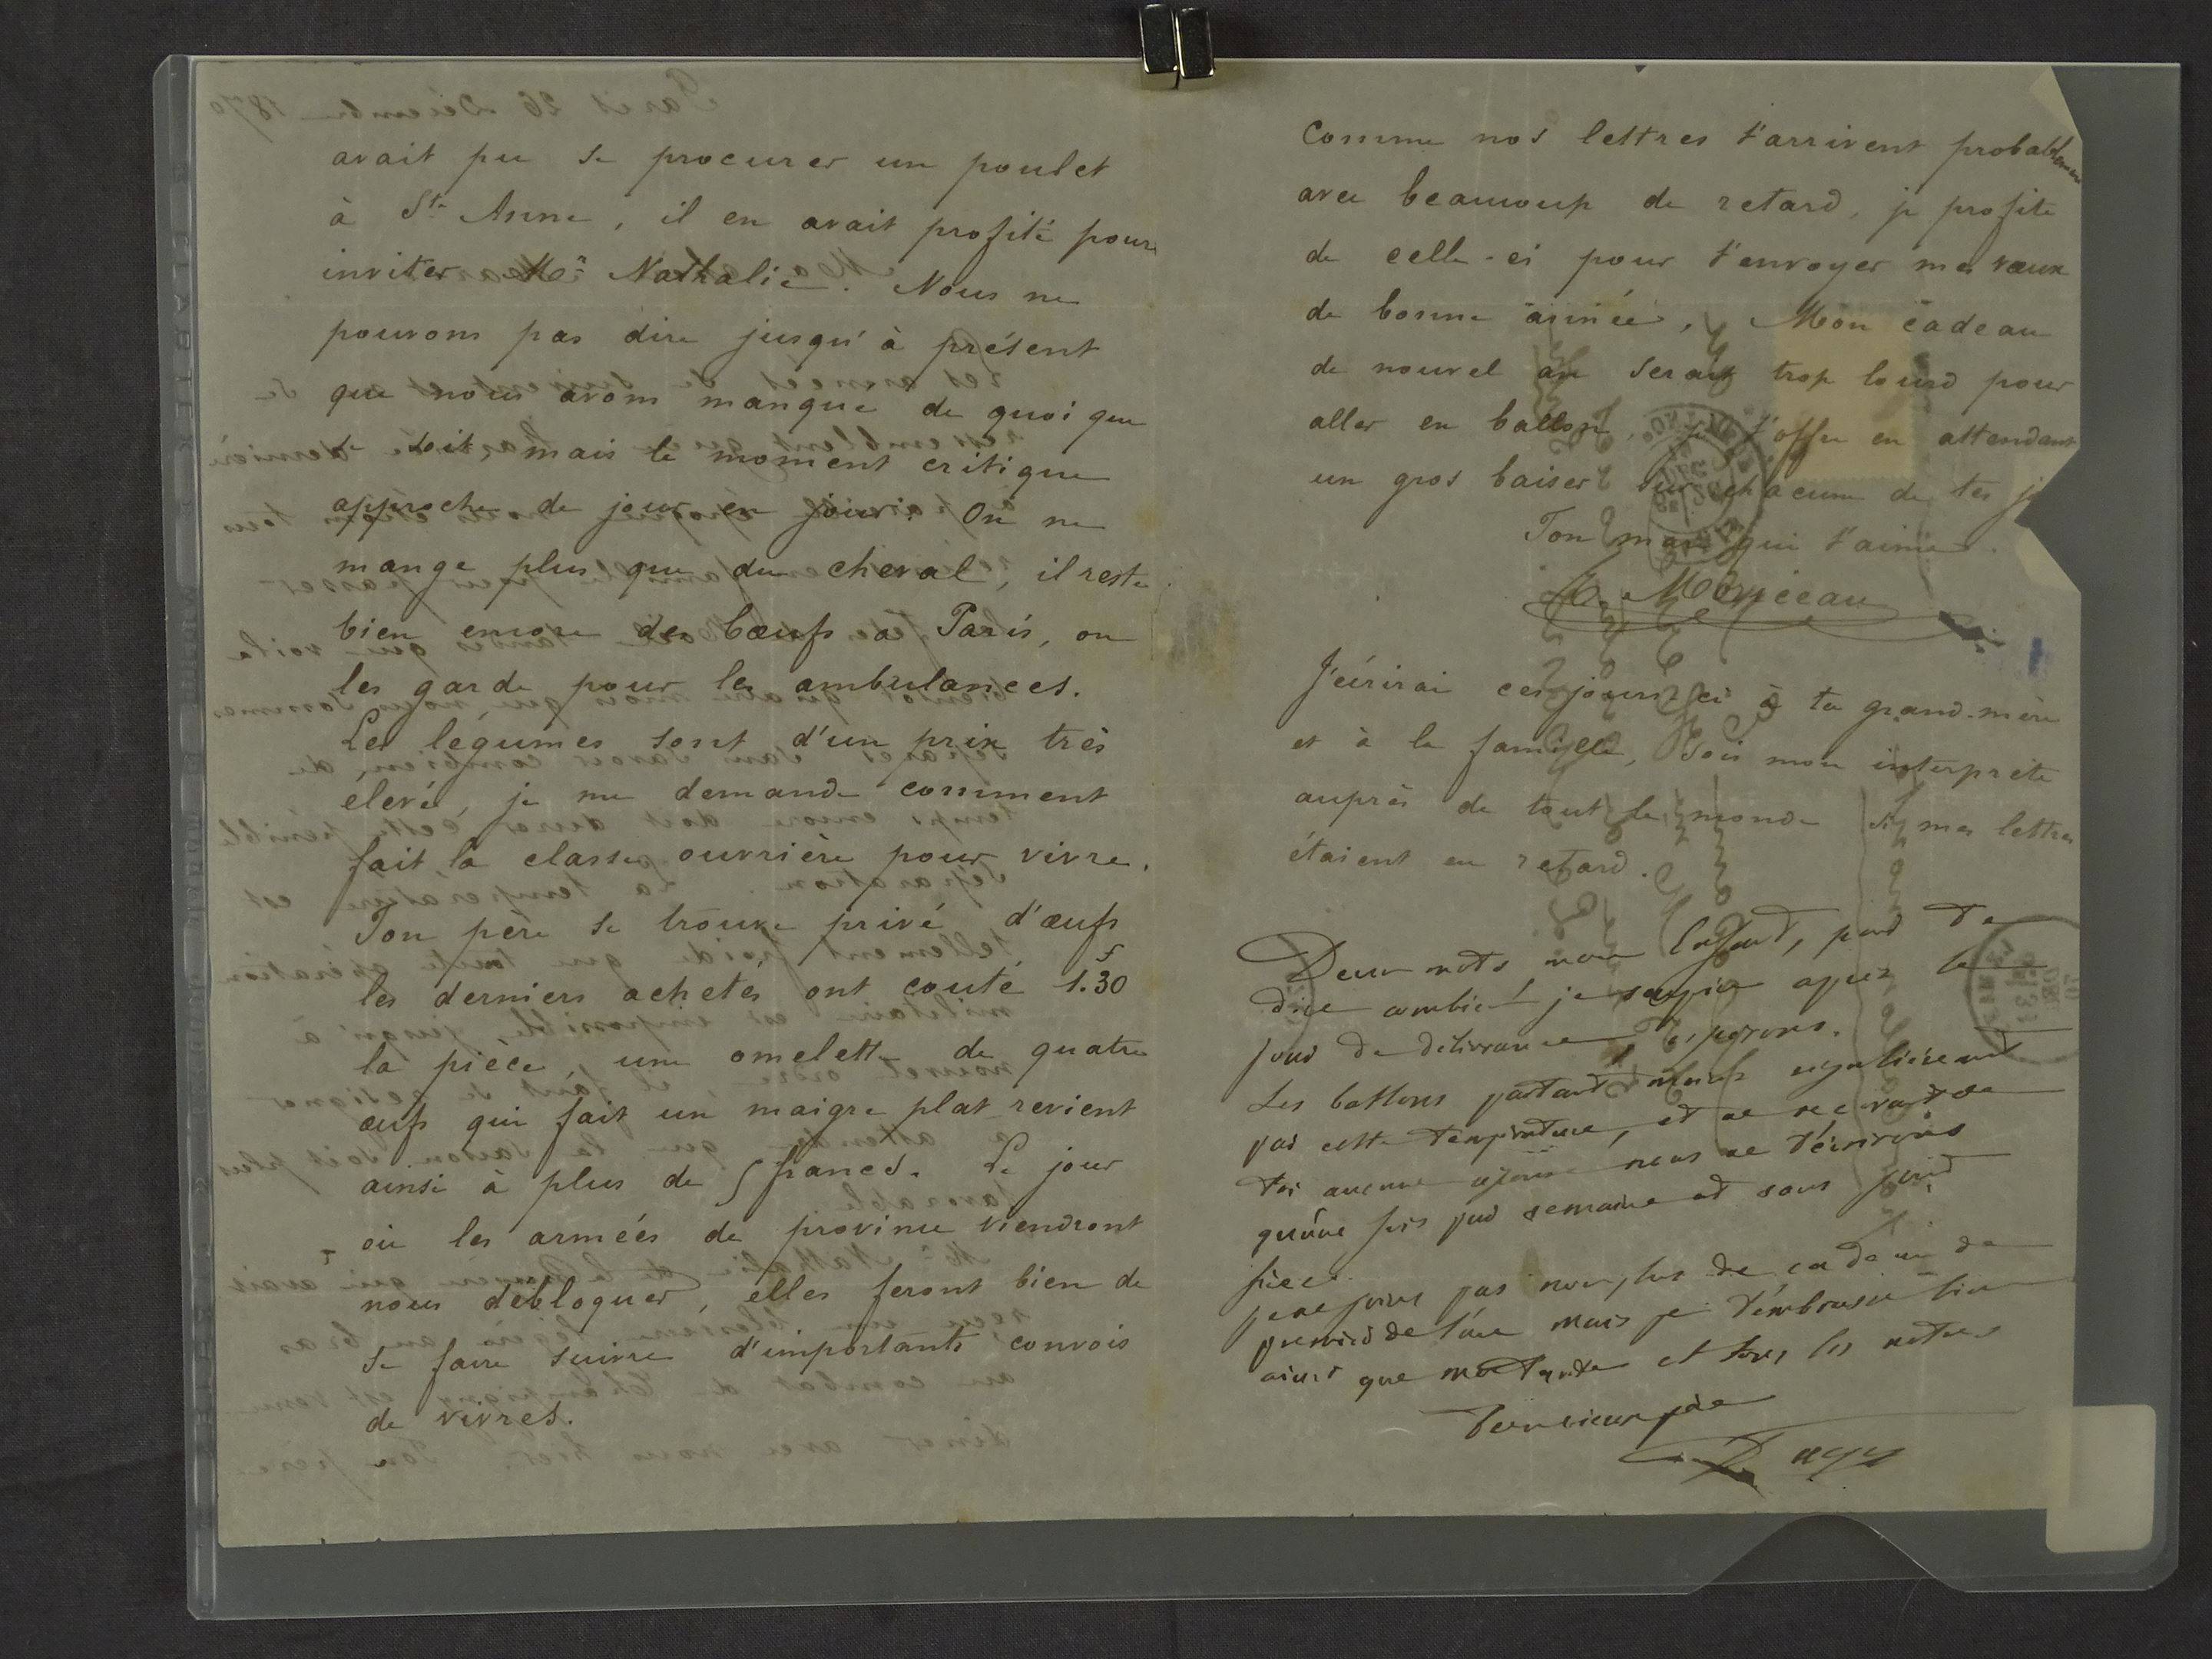 avait pu se procurer un poulet
à Ste Anne, il en avait profité pour
inviter Mr Nathalie. Nous ne
pouvons pas dire jusqu'à présent
que nous avons manqué de quoi que
ce soit, mais le moment critique
approche de jour en jour. On ne
mange plus que du cheval, il reste
bien encore des bœufs à Paris, on
les garde pour les ambulances.
Les légumes sont d'un prix très
élevé, je me demande comment
fait la classe ouvrière pour vivre.
Ton père se trouve privé d'œufs
les derniers achetés ont couté 1.f30
la pièce, une omelette de quatre
œufs qui fait un maigre plat revient
ainsi à plus de 5 francs. Le jour
où les armées de province viendront
nous débloquer, elles feront bien de
se faire suivre d'importants convois
de vivres.
Comme nos lettres t'arrivent probablement
avec beaucoup de retard, je profite
de celle-ci pour t'envoyer mes vœux
de bonne année. Mon cadeau
de nouvel an serait trop lourd pour
aller en ballon, je t'offre en attendant
un gros baiser sur chacune de tes
Ton mari qui t'aime.
J'écrirai ces jours-ci à ta grand-mère
et à la famille, sois mon interprète
auprès de tout le monde si mes lettres
étaient en retard.
Deux mots mon enfant, pour te
dire combien je soupire après le
jour de délivrance, espérons.
Les ballons partant moins régulièrement
par cette température, et ne recevant de
toi aucune nous ne t'écrirons
qu'une fois par semaine et sous
je ne pas non plus de cadeau de
premier de l'an mais je t'embrasse bien
ainsi que ma tante et tous les nôtres
Ton vieux père